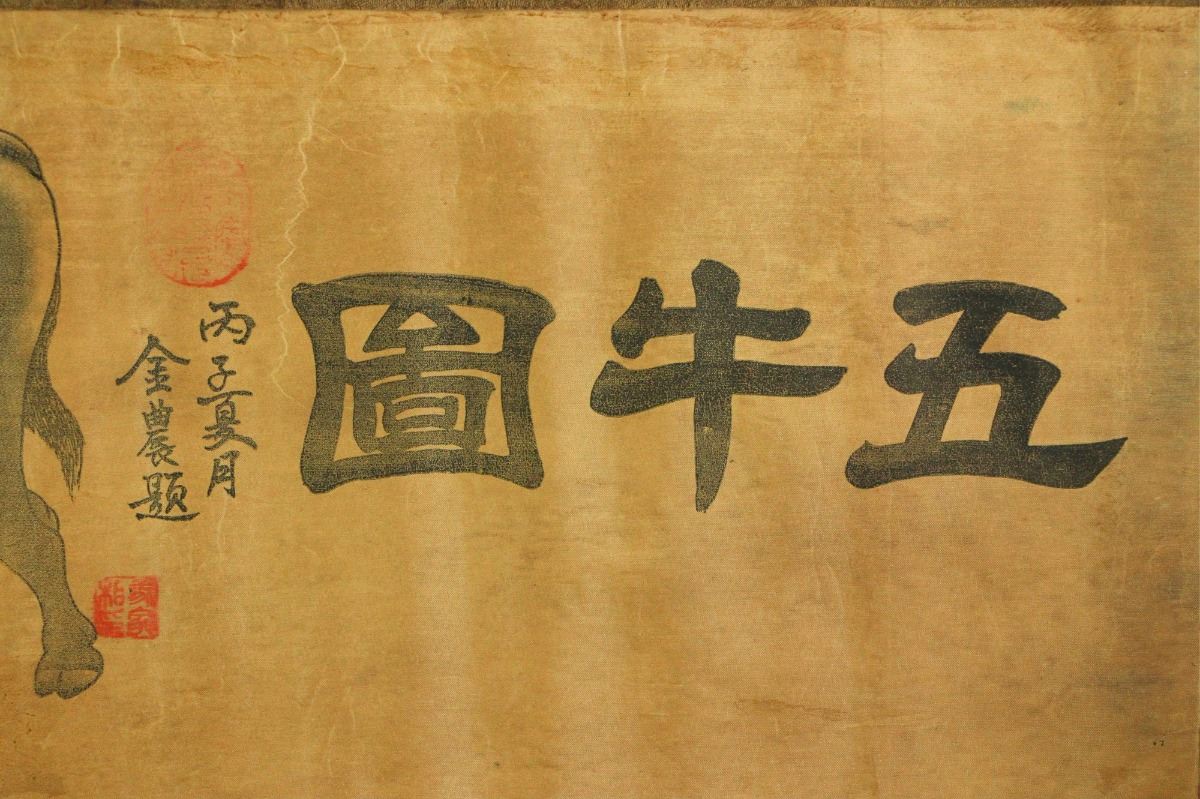 五牛圖
丙子夏月
金農題